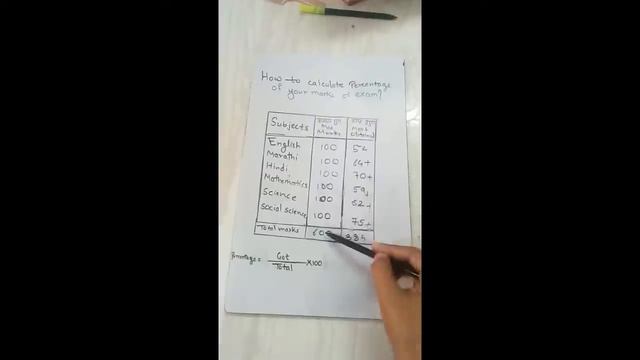 How to calculate Percentage
of your marks of exam?
Subjects Max Marks
English 100
Marathi 100 64+
Hindi 100 70+
Mathematics 100 59+
Science 100 62+
Social science 100 75+
Total marks 600 385
Percentage = Got / Total ×100